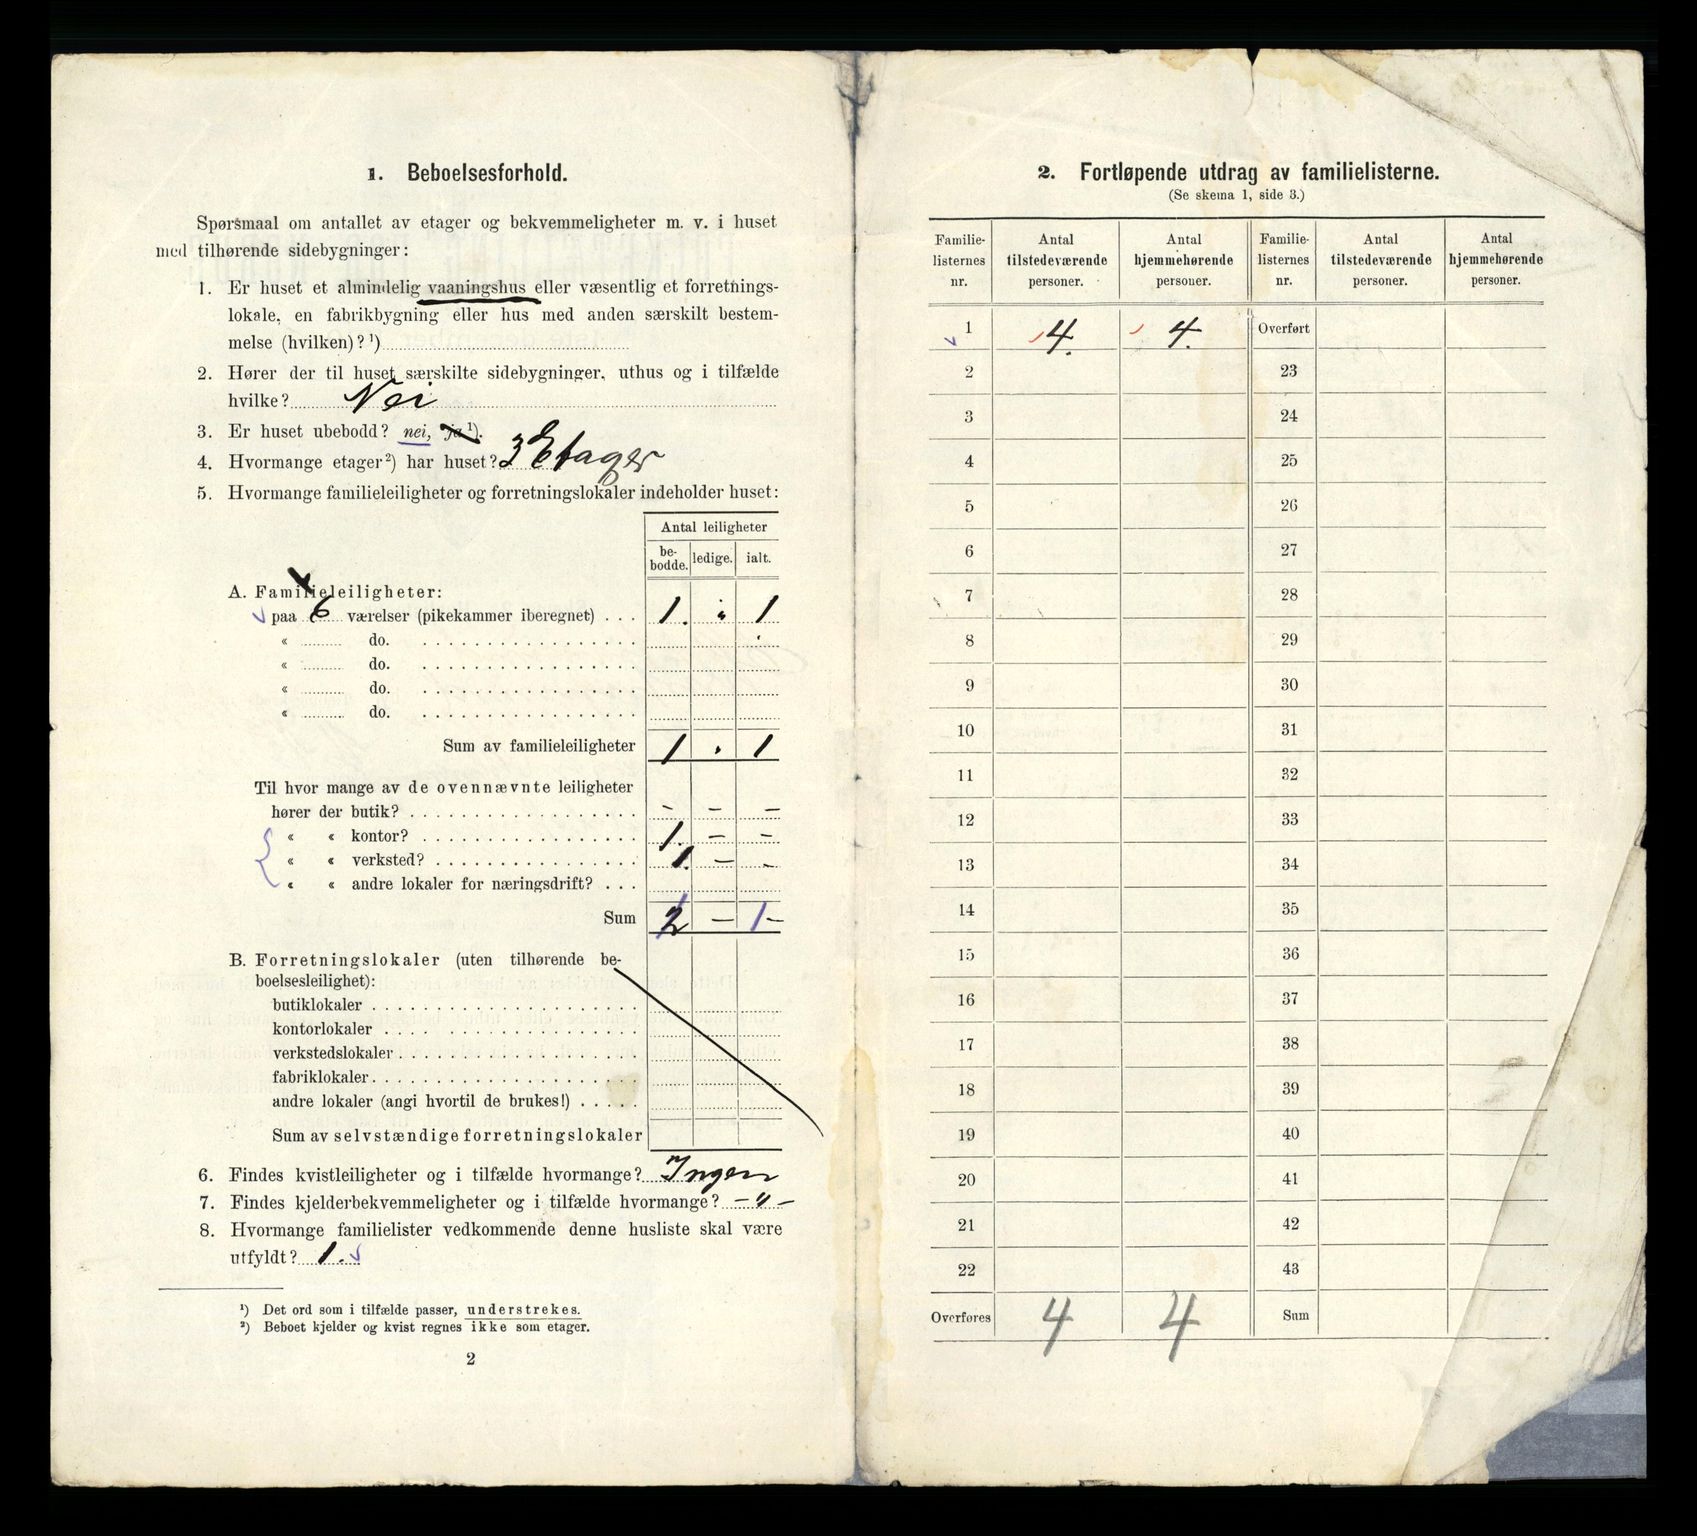 1. Beboelsesforhold.
Spørsmaal om antallet av etager og bekvemmeligheter m. v. i huset
med tilhørende sidebygninger:
1. Er huset et almindelig vaaningshus eller væsentlig et forretnings-
lokale, en fabrikbygning eller hus med anden særskilt bestem-
melse (hvilken)? ¹)
2. Hører der til huset særskilte sidebygninger, uthus og i tilfælde
hvilke? Nei
3. Er huset ubebodd? nei, ja ¹).
4. Hvormange etager²) har huset? 3 Etager
5. Hvormange familieleiligheter og forretningslokaler indeholder huset:
Antal leiligheter
be-bodde. ledige. ialt.
A. Familieleiligheter:
paa 6 værelser (pikekammer iberegnet) . . . 1. " 1
« do.
« do.
« do.
« do.
Sum av familieleiligheter 1 . 1
Til hvor mange av de ovennævnte leiligheter
hører der butik? - - -
« « kontor? 1. - -
« « verksted? 1. - -
« « andre lokaler for næringsdrift? . . .
Sum 2 - 1 -
B. Forretningslokaler (uten tilhørende be-
boelsesleilighet):
butiklokaler
kontorlokaler
verkstedslokaler
fabriklokaler
andre lokaler (angi hvortil de brukes!)
Sum av selvstændige forretningslokaler
6. Findes kvistleiligheter og i tilfælde hvormange? Ingen
7. Findes kjelderbekvemmeligheter og i tilfælde hvormange? - " -
8. Hvormange familielister vedkommende denne husliste skal være
utfyldt? 1.
¹) Det ord som i tilfælde passer, understrekes.
²) Beboet kjelder og kvist regnes ikke som etager.
2
2. Fortløpende utdrag av familielisterne.
(Se skema 1, side 3.)
Familie-listernes nr. Antal tilstedeværende personer. Antal hjemmehørende personer. Familie-listernes nr. Antal tilstedeværende personer. Antal hjemmehørende personer.
1 4. 4. Overført
2 23
3 24
4 25
5 26
6 27
7 28
8 29
9 30
10 31
11 32
12 33
13 34
14 35
15 36
16 37
17 38
18 39
19 40
20 41
21 42
22 43
Overføres 4 4 Sum